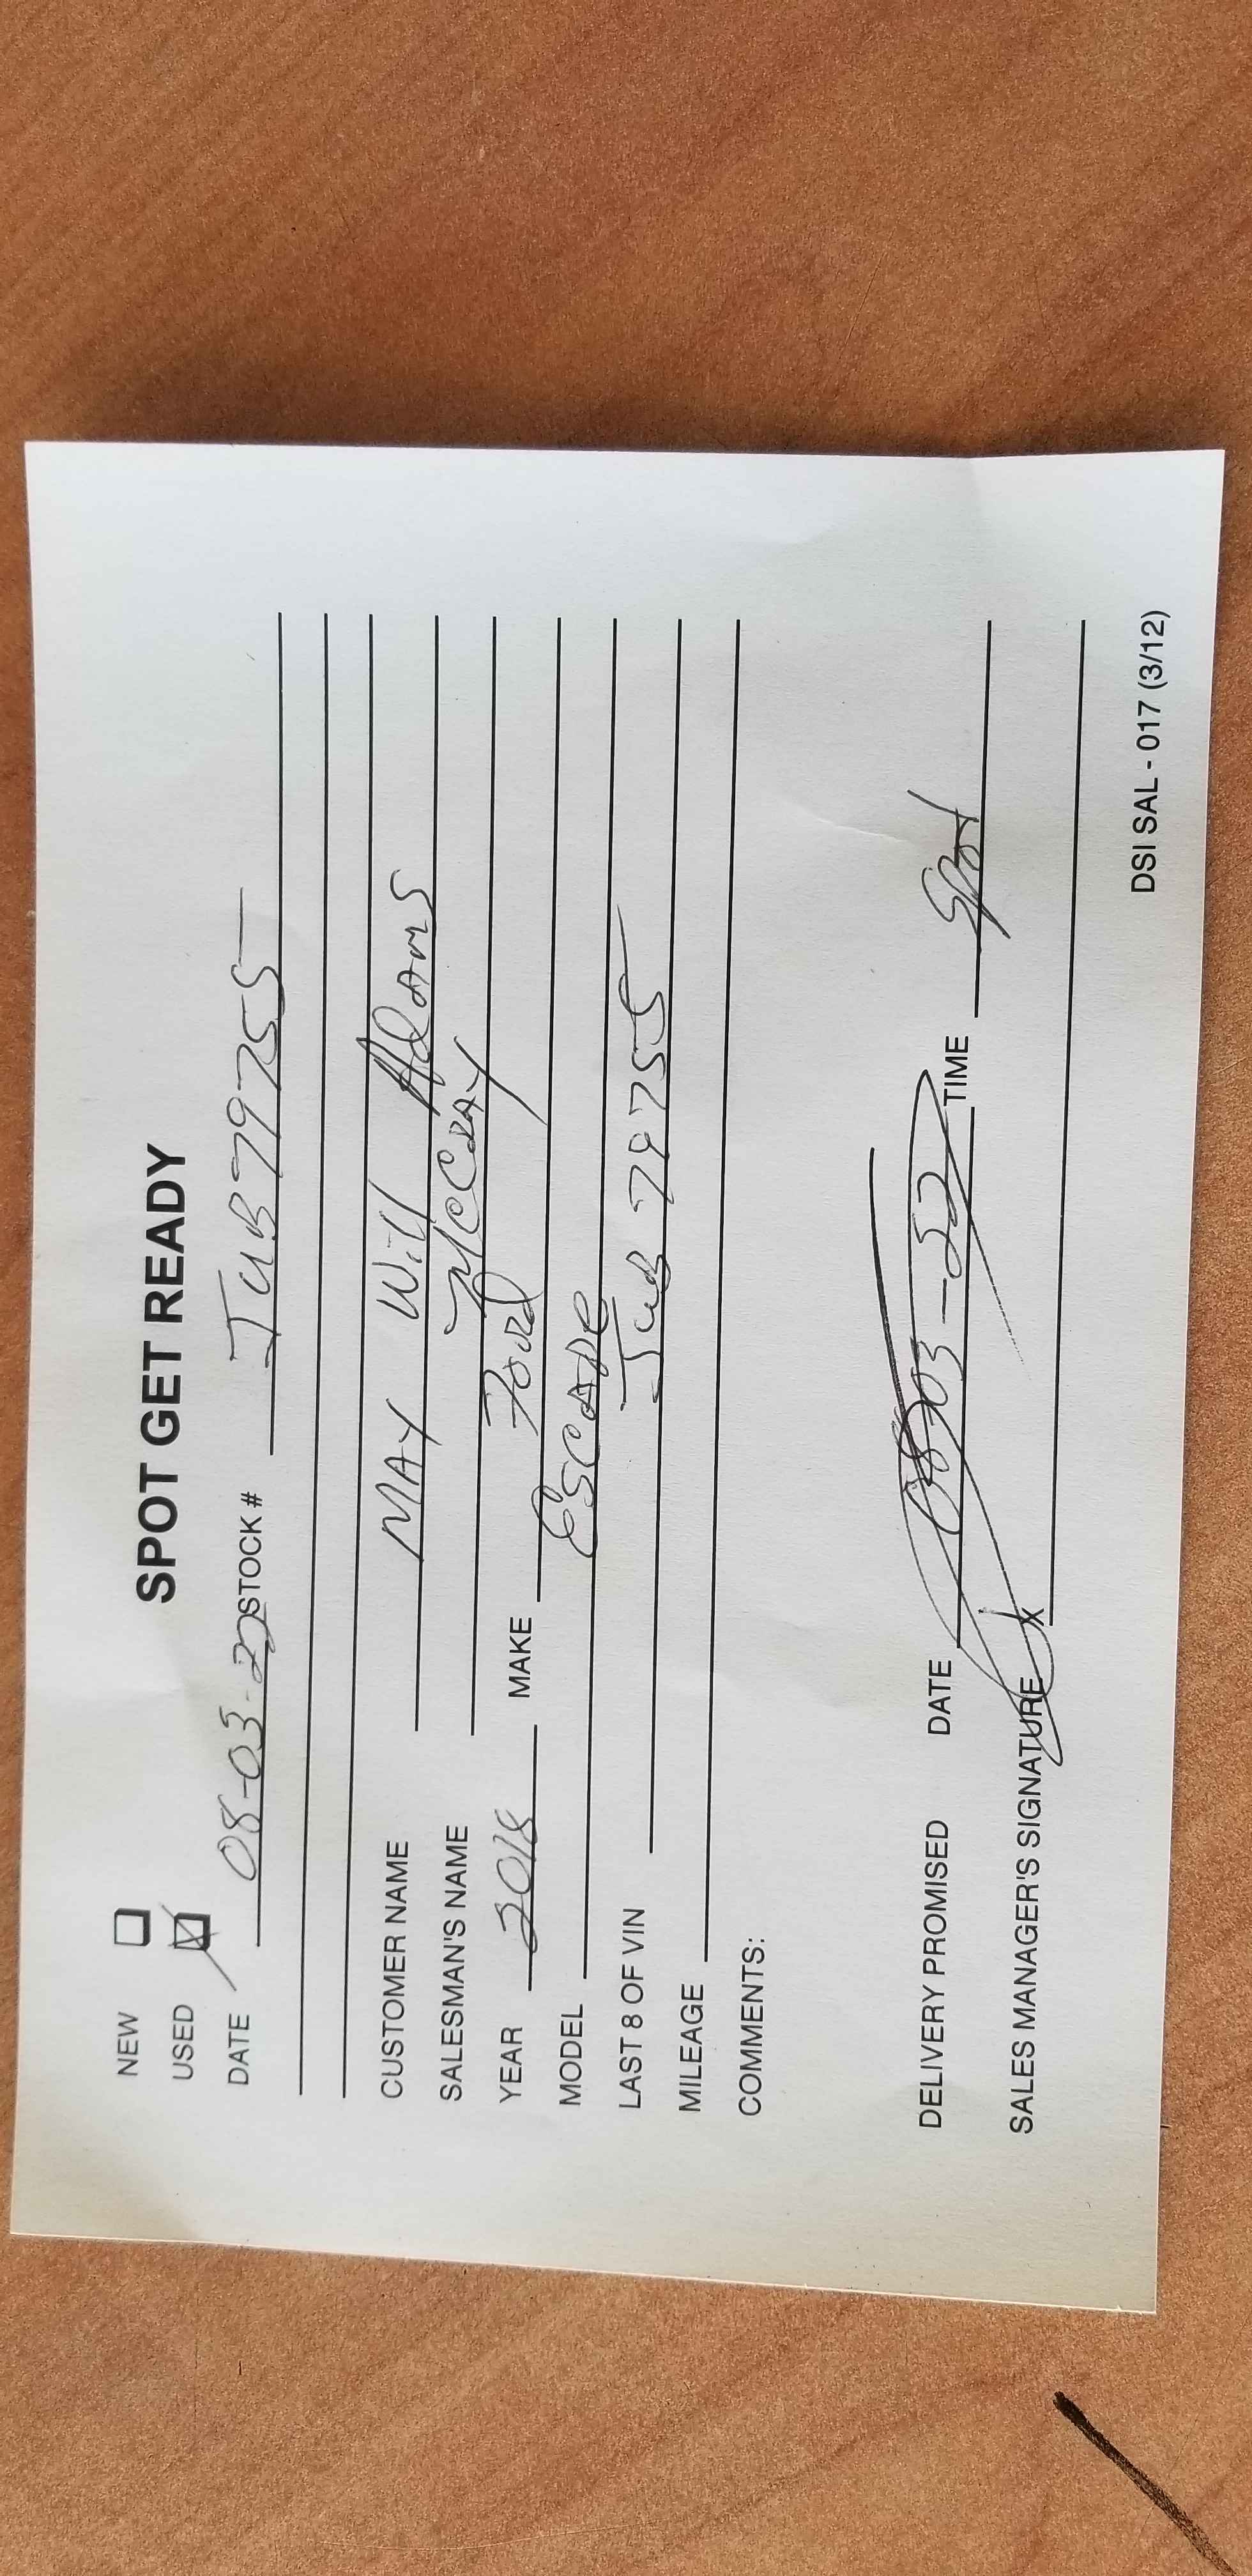 SPOT GET READY
NEW
USED
DATE 08-03-22 STOCK # JUB79755
CUSTOMER NAME MAY Will Adams
SALESMAN'S NAME McCRAY
YEAR 2018 MAKE Ford
MODEL ESCAPE
LAST 8 OF VIN JUB79755
MILEAGE
COMMENTS:
DELIVERY PROMISED DATE 08-03-22 TIME Spot
SALES MANAGER'S SIGNATURE X
DSI SAL - 017 (3/12)